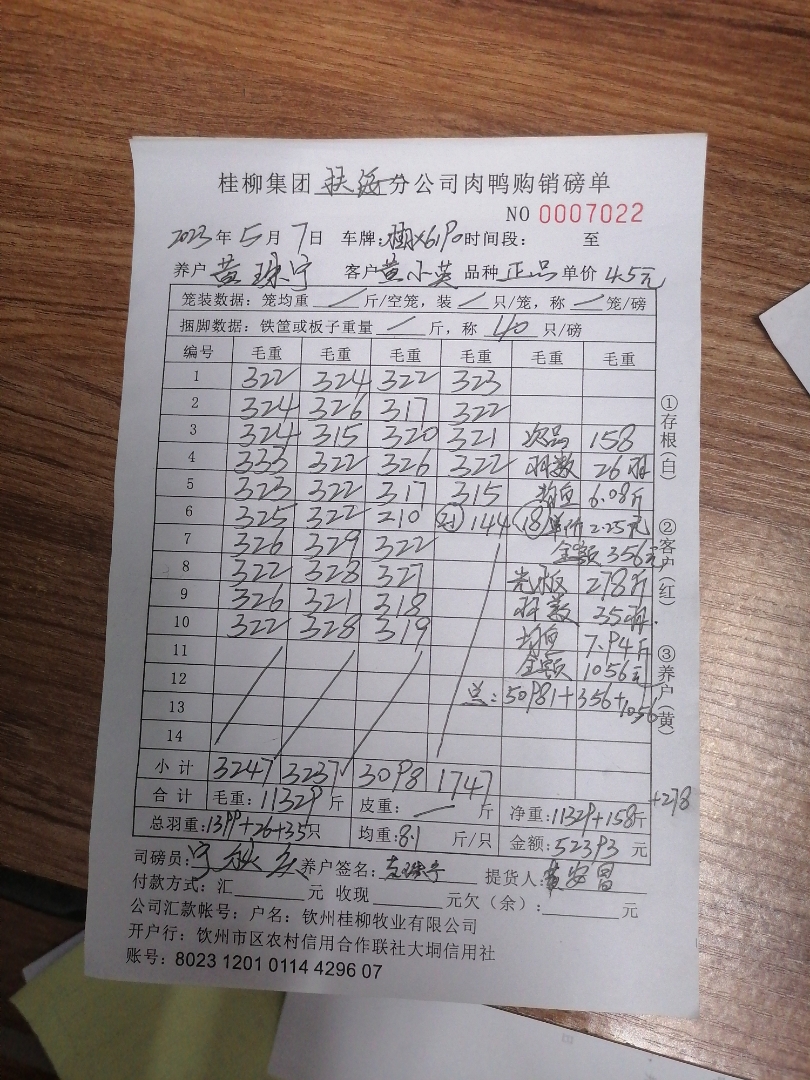 桂柳集团 扶绥 分公司肉鸭购销磅单
NO 0007022
2023年5月7日 车牌: 时间段: 至
养户 黄珠宁 客户 黄小英 品种 正品 单价 4.5元
笼装数据: 笼均重 / 斤/空笼, 装 / 只/笼, 称 / 笼/磅
捆脚数据: 铁筐或板子重量 / 斤, 称 40 只/磅
编号 毛重 毛重 毛重 毛重 毛重 毛重
1 322 324 322 323
2 324 326 317 322
3 324 315 320 321 次品 158
4 333 322 326 322 羽数 26羽
5 323 322 317 315 均重 6.08斤
6 325 322 210 (21) 144 (18) 单价 2.25元
7 326 329 322 金额 356元
8 322 328 327 光板 278斤
9 326 321 318 羽数 35羽.
10 322 328 319 均重 7.94斤
11 金额 1056元
12 总: 50981+356+1056
13
14
小计 3247 3237 3098 1747
合计 毛重: 11329 斤 皮重: / 斤 净重: 11329+158斤+278
总羽重: 1399+26+35只 均重: 8.1 斤/只 金额: 52393 元
司磅员: 养户签名: 黄珠宁 提货人: 黄安昌
付款方式: 汇 元 收现 元欠(余): 元
公司汇款帐号: 户名: 钦州桂柳牧业有限公司
开户行: 钦州市区农村信用合作联社大垌信用社
账号: 8023 1201 0114 4296 07
①存根(白)
②客户(红)
③养户(黄)